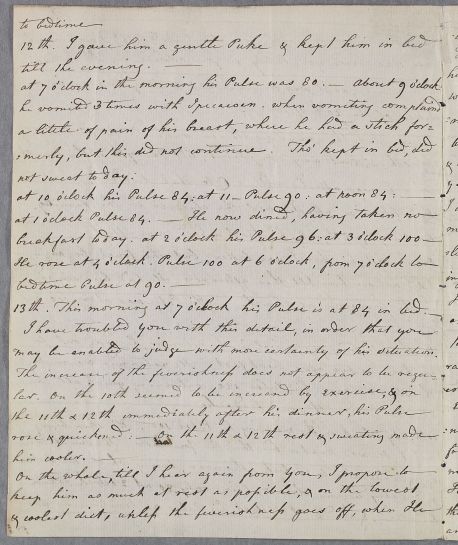 to bedtime
12th. I gave him a gentle Puke & kept him in bed
till the evening. —
at 7 o'clock in the morning his Pulse was 80. — about 9 o'clock
he vomited 3 times with Ipecacuan. when vomiting complaind
a little of pain of his breast, where he had a stick for=
=merly, but this did not continue. Tho' kept in bed, did
not sweat to day:
at 10 o'clock his Pulse 84: at 11 — Pulse 90: at noon 84: —
at 1 o'clock Pulse 84. — He now dined, having taken no
breakfast to day. at 2 o'clock his Pulse 96: at 3 o'clock 100 —
He rose at 4 o'clock. Pulse 100 at 6 o'clock, from 7 o'clock to
bedtime Pulse at 90. —
13th. This morning at 7 o'clock his Pulse is at 84 in bed. —
I have troubled you with this detail, in order that you
may be enabled to judge with more certainty of his situation.
The increase of the feverishness does not appear to be regu=
lar. On the 10th seemed to be increased by exercise, & on
the 11th & 12th immediately after his dinner, his Pulse
rose & quickened: — On the 11th & 12th rest & sweating made
him cooler.
On the whole, till I hear again from you, I propose to
keep him as much at rest as possible, & on the lowest
& coolest diet, unless the feverishness goes off, when He